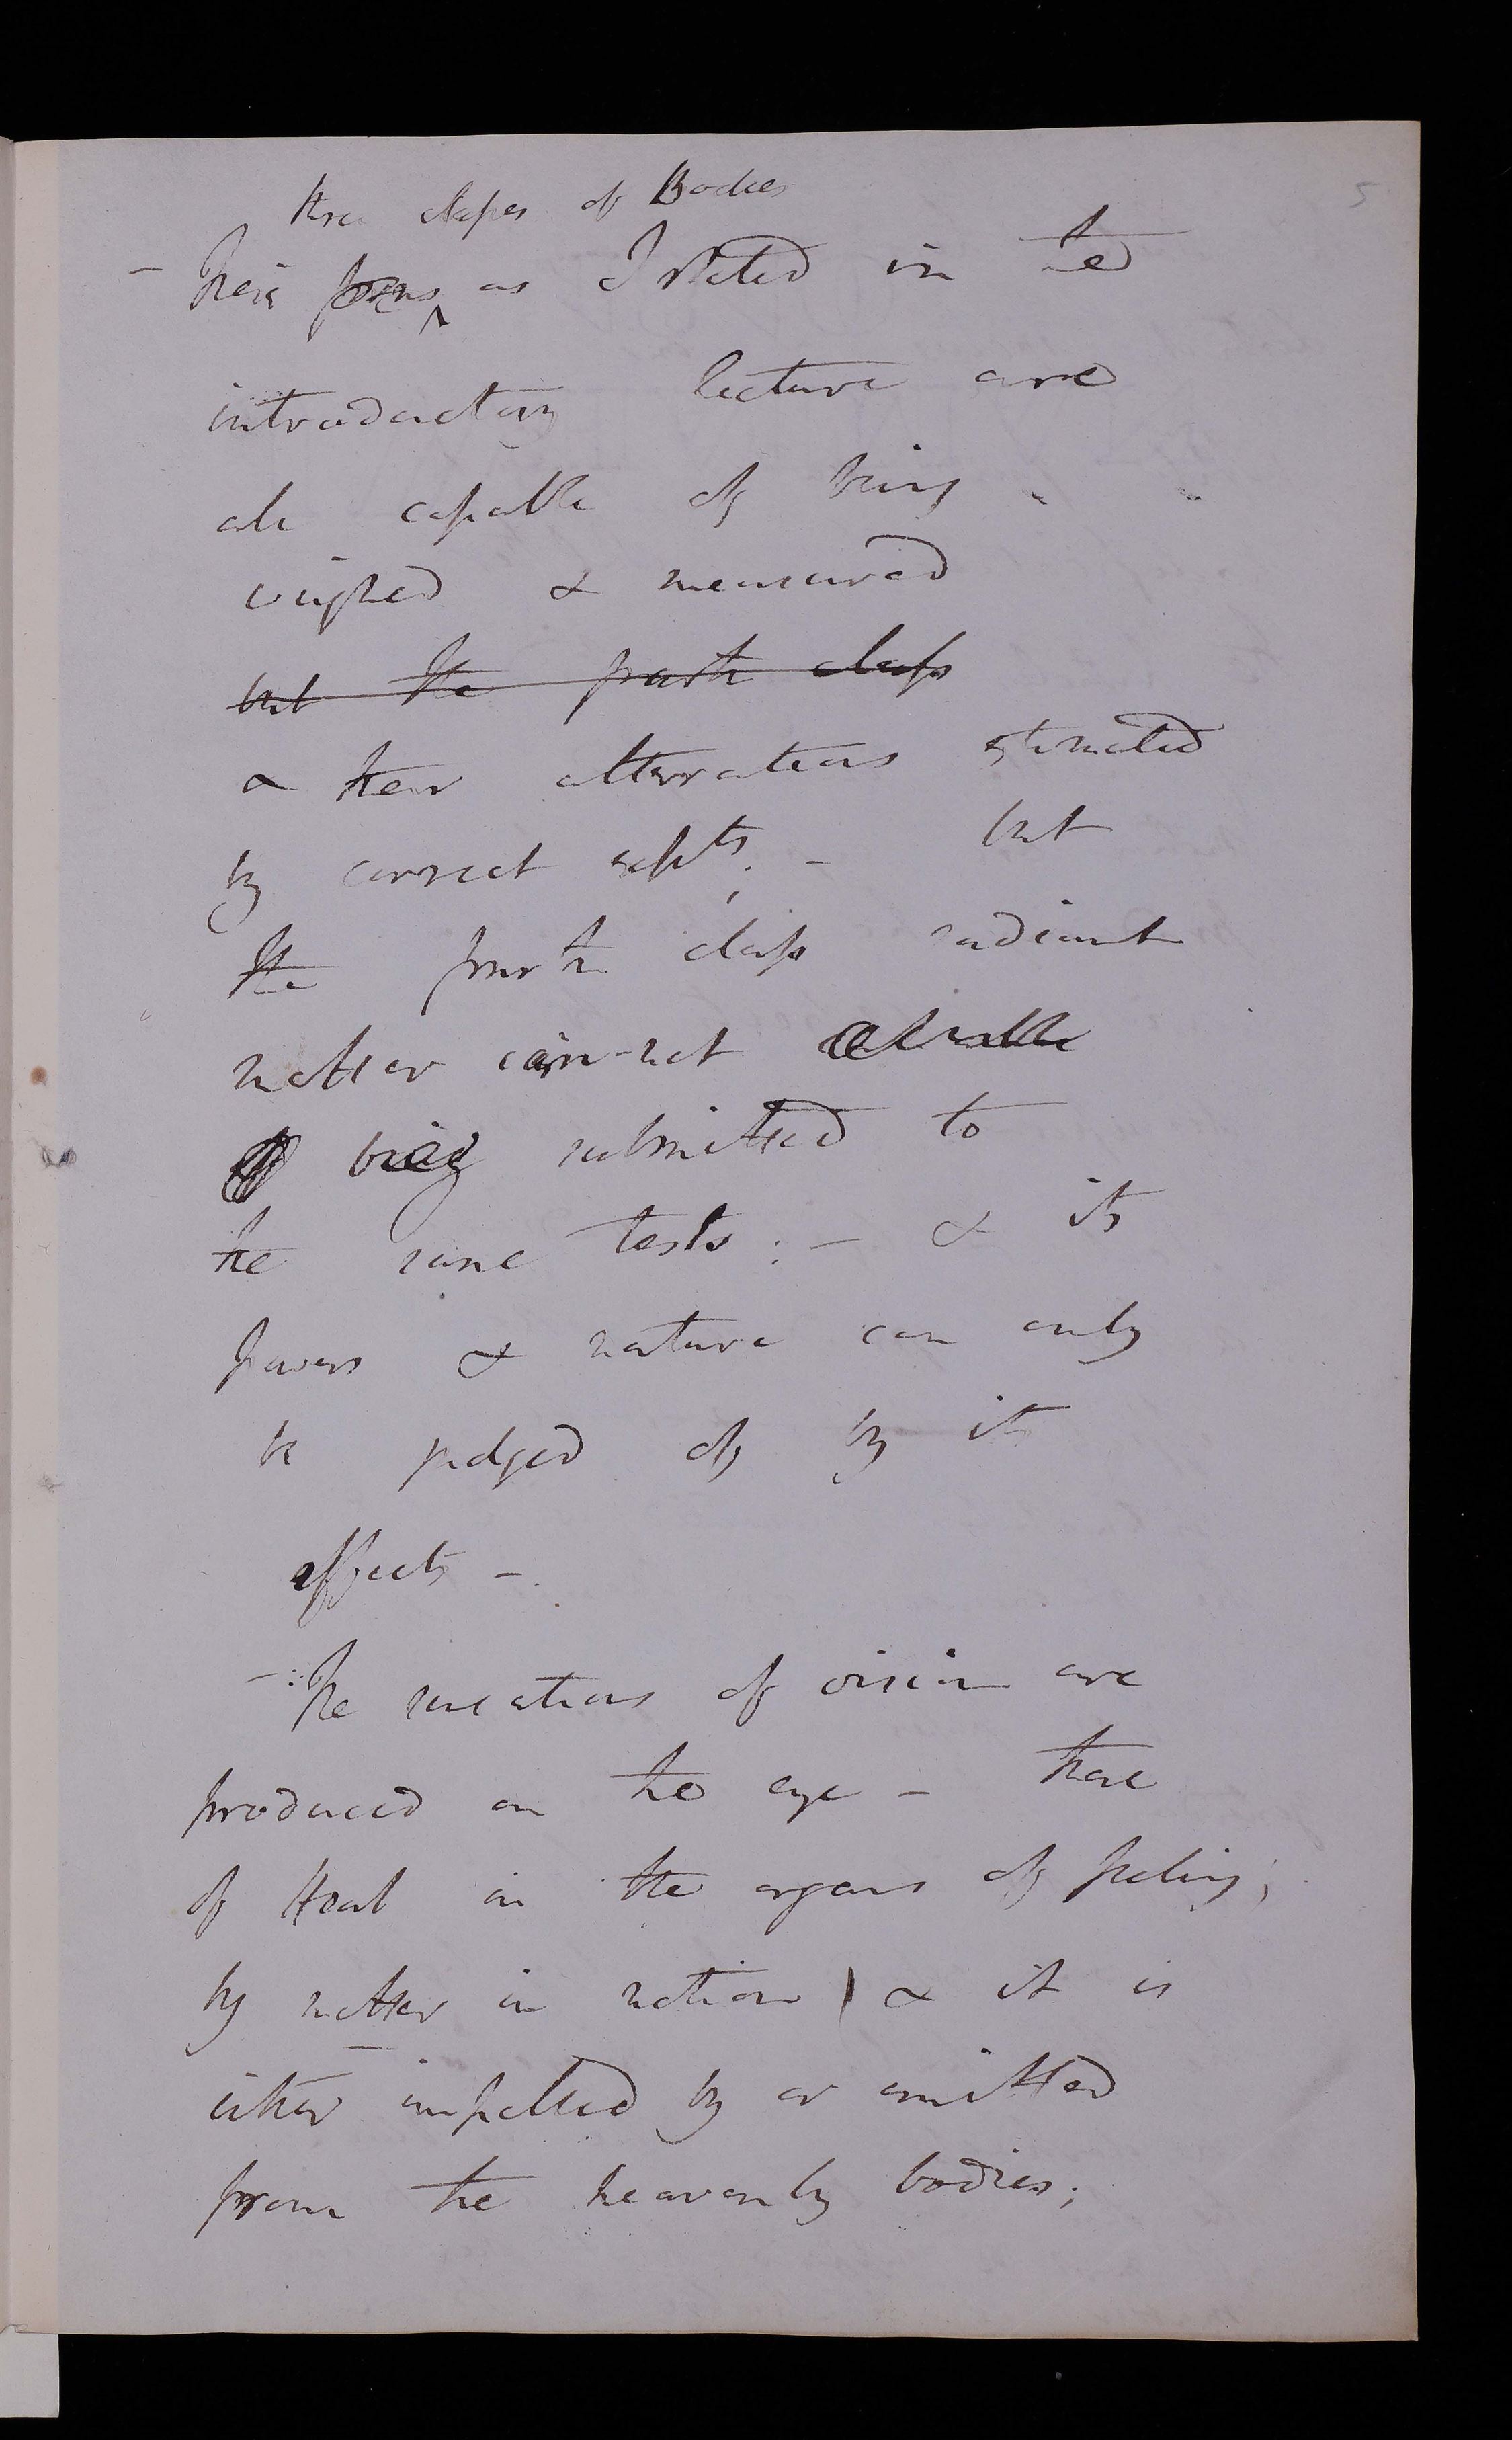 5
three classes of Bodies
– These forms as I stated in the
introductory lecture are
all capable of being
weighed & measured
but the fourth class
& their alterations estimated
by correct expts; – but
the fourth class radiant
matter cannot
being submitted to
the same tests: – & its
powers & nature can only
be judged of by its
effects –.
– The sensations of vision are
produced on the eye – those
of Heat in the organs of feeling;
by matter in motion & it is
either impelled by or emitted
from the heavenly bodies;